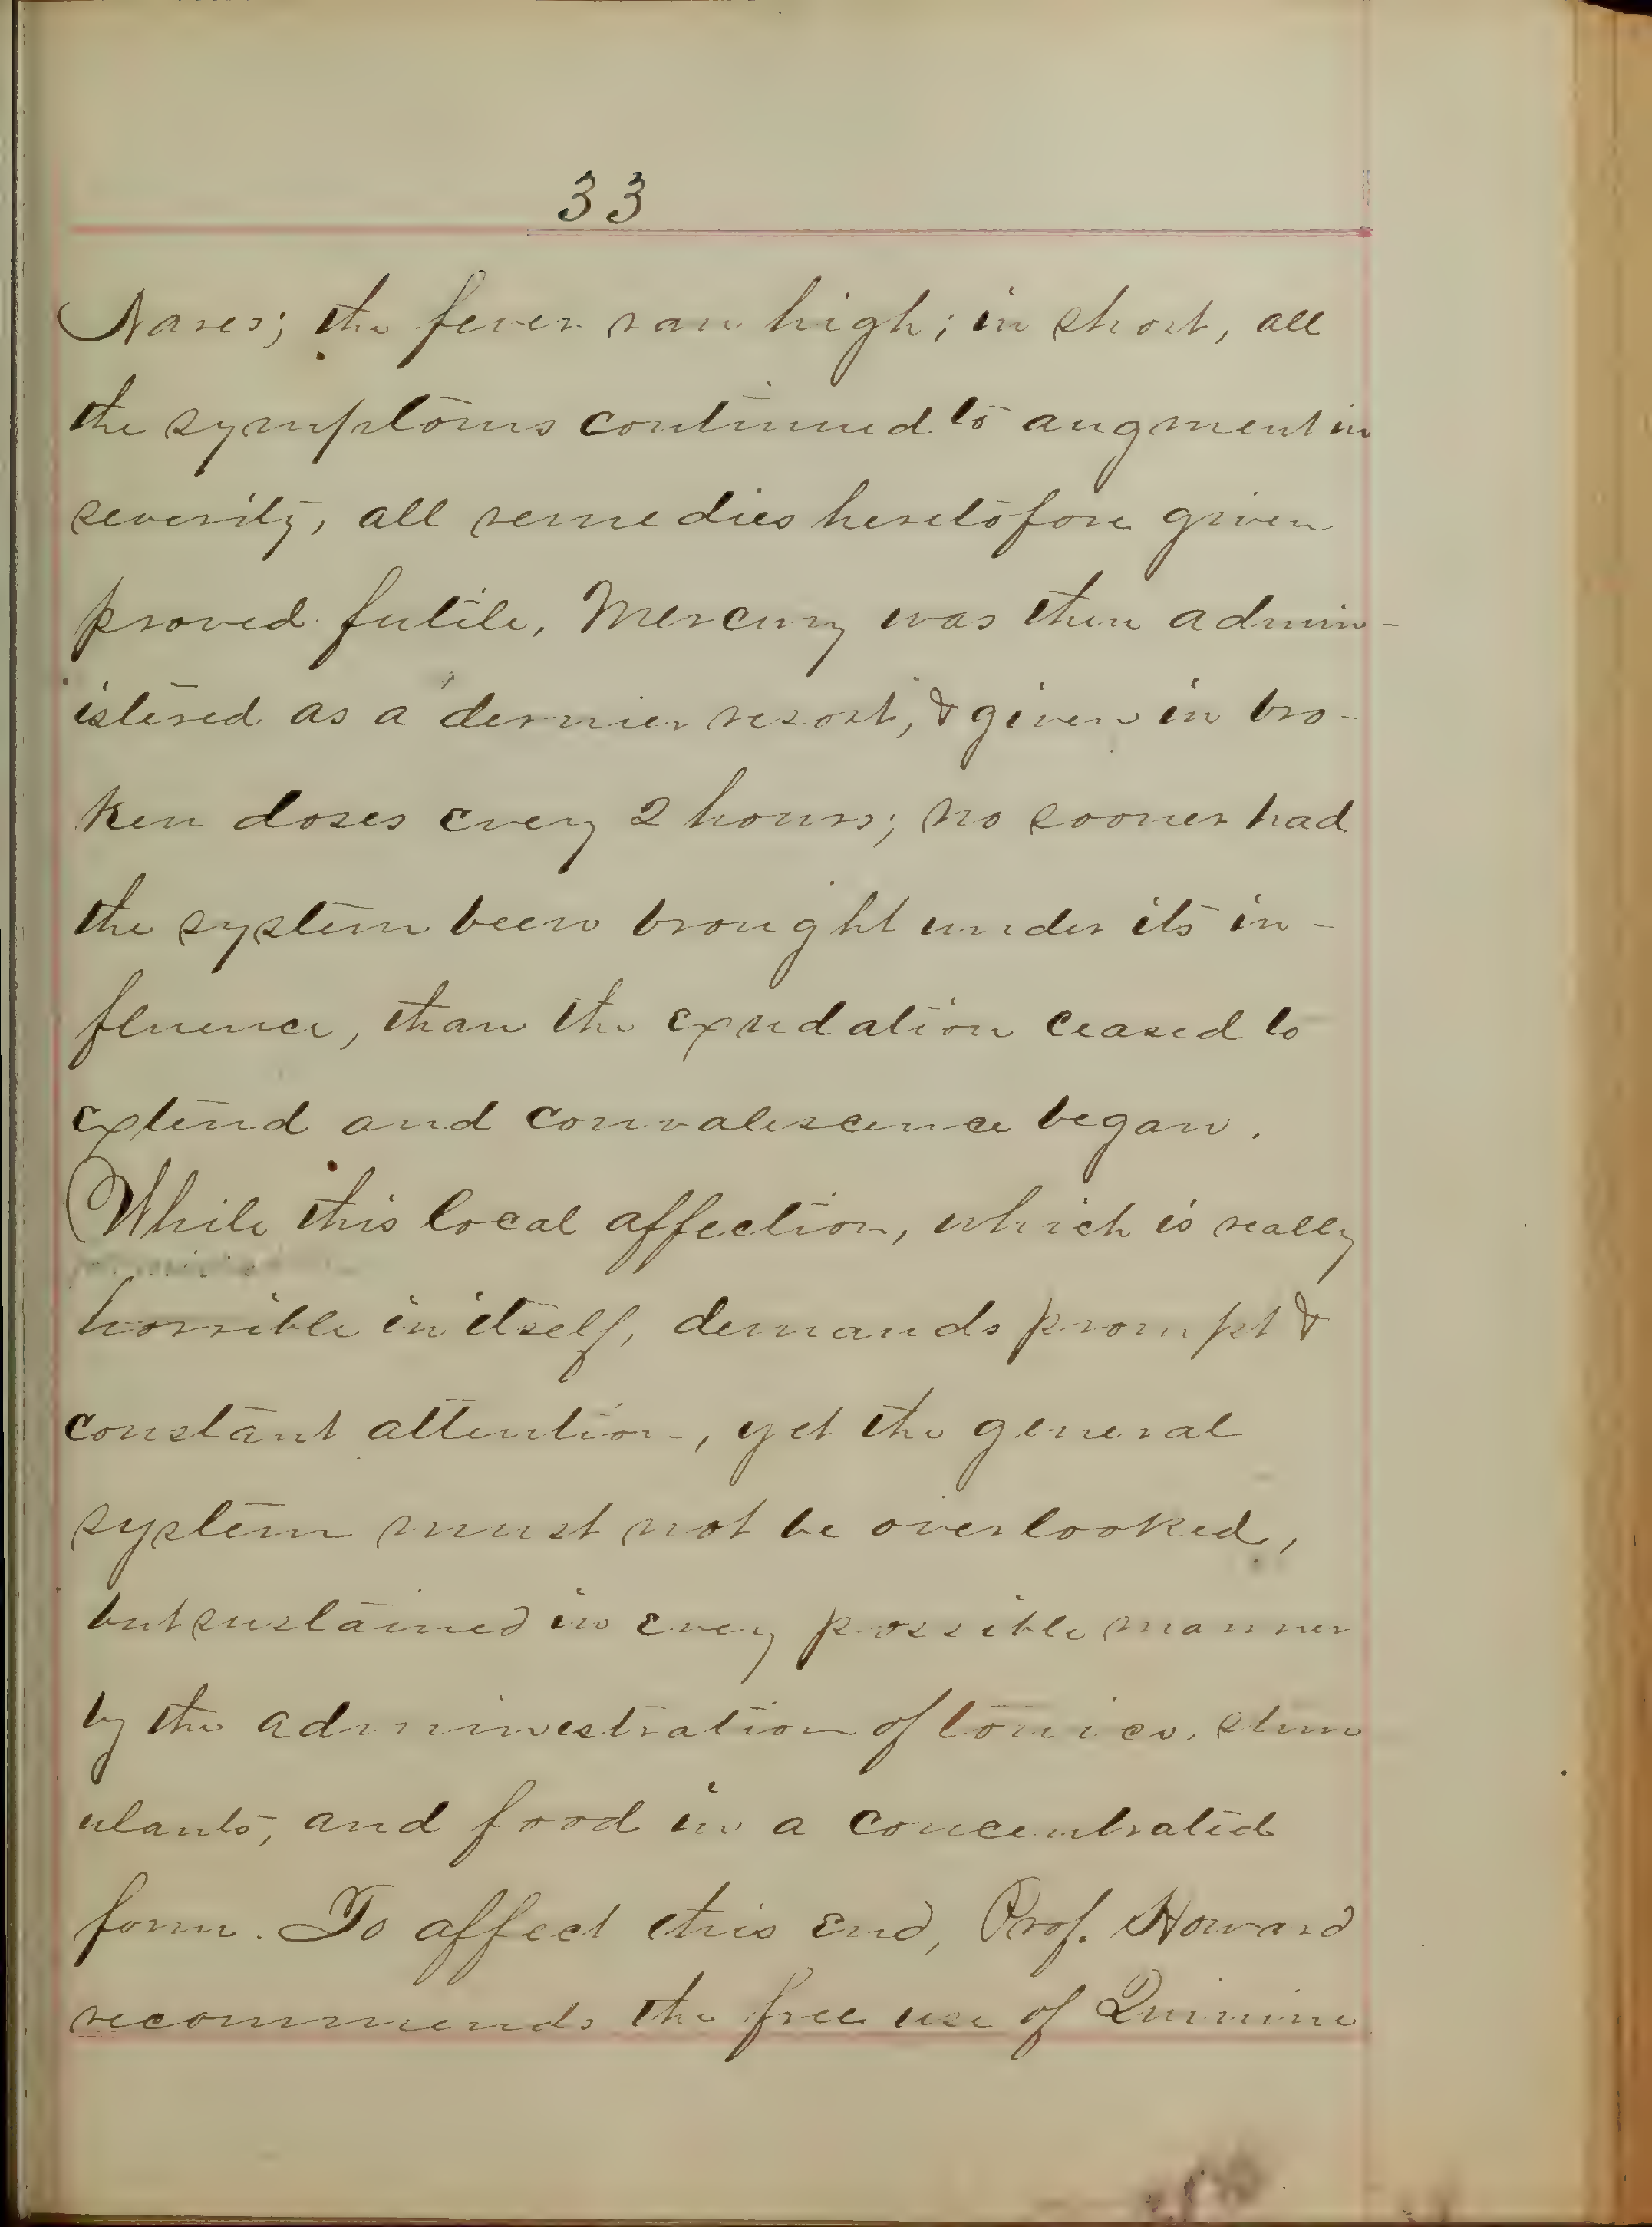 33
Nares; the fever ran high; in short, all
the symptoms continued to augment in
severity, all remedies heretofore given
proved futile, Mercury was then admin-
istered as a dernier resort, & given in bro-
ken doses every 2 hours; no sooner had
the system been brought under its in-
fluence, than the exudation ceased to
extend and convalescence began.
While this local affection, which is really
horrible in itself, demands prompt &
constant attention, yet the general
system must not be overlooked,
but sustained in every possible manner
by the administration of tonics, stim
ulants, and food in a concentrated
form. To affect this end, Prof. Howard
recommends the free use of Quinine